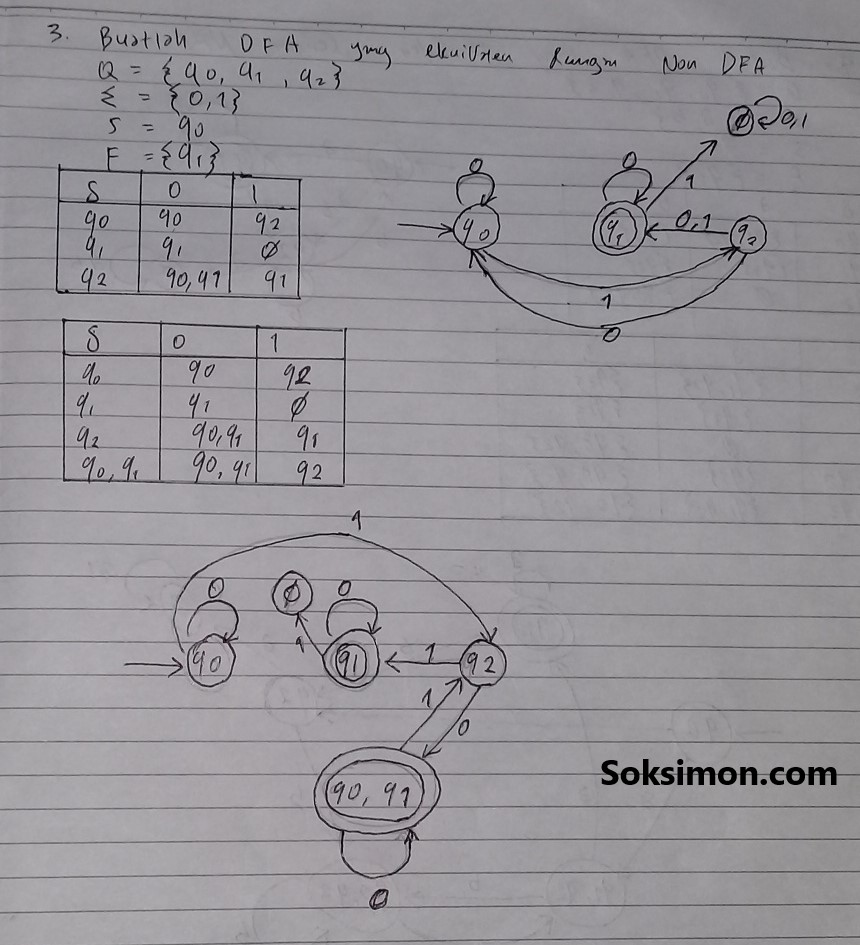 3. Buatlah DFA yang ekuivalen dengan Non DFA
Q = {q0, q1, q2}
Σ = {0,1}
S = q0
F = {q1}
δ 0 1
q0 q0 q2
q1 q1 ∅
q2 q0,q1 q1
0 0 ∅ 0,1
1
q0 q1 0,1 q2
1
0
δ 0 1
q0 q0 q2
q1 q1 ∅
q2 q0,q1 q1
q0,q1 q0,q1 q2
1
0 ∅ 0
q0 1 q1 1 q2
1 0
q0, q1
0
Soksimon.com